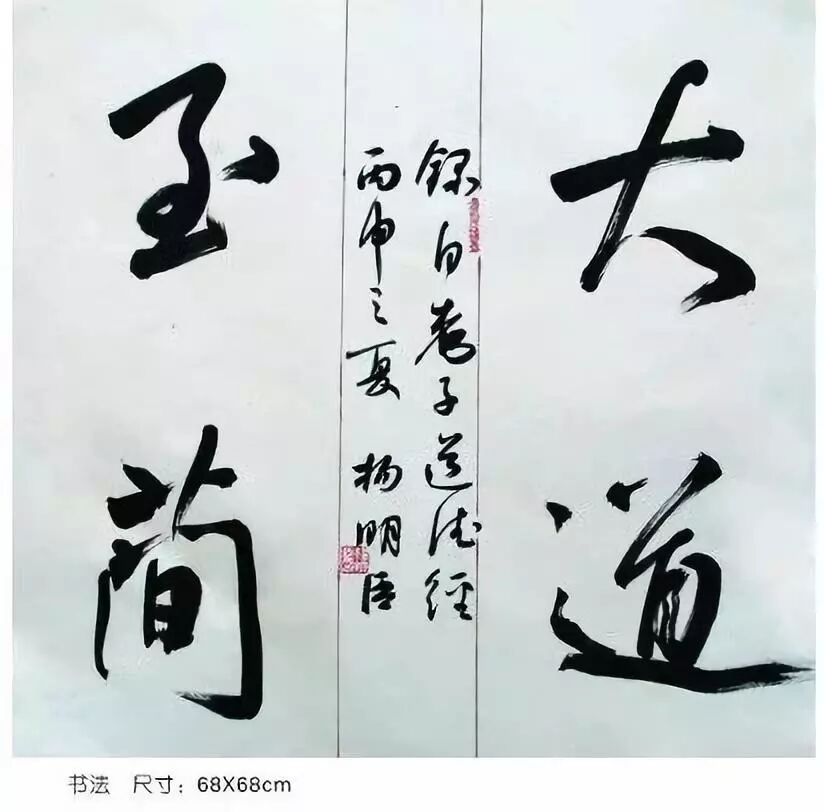 大道
至简
録自老子道德經
丙申之夏 杨明臣
书法 尺寸：68X68cm